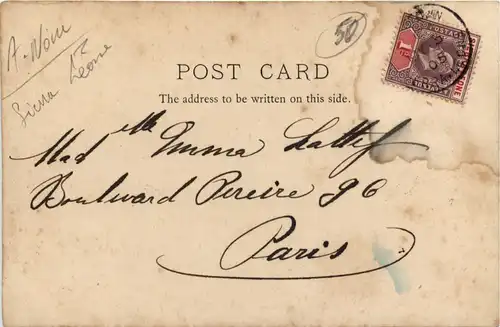 A. Noir
Sierra Leone
50
POST CARD
The address to be written on this side.
Mad elle Emma
Boulevard Pereire 96
Paris